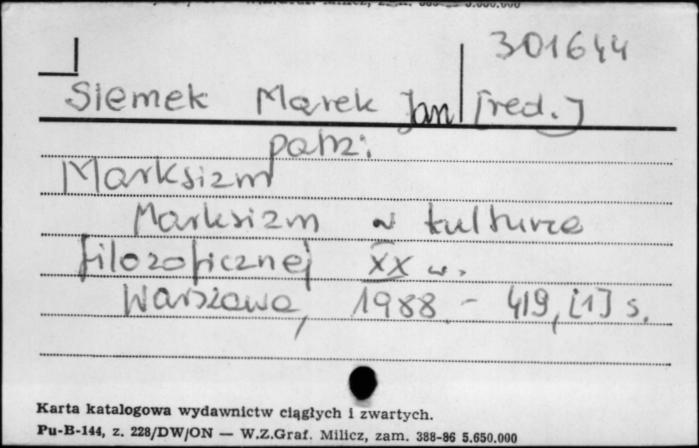 301644
Siemek Marek Jan [red.]
patrz:
Marksizm
Marksizm w kulturze
filozoficznej XX w.
Warszawa, 1988 - 419, [1] s.
Karta katalogowa wydawnictw ciągłych i zwartych.
Pu-B-144, z. 228/DW/ON — W.Z.Graf. Milicz, zam. 388-86 5.650.000